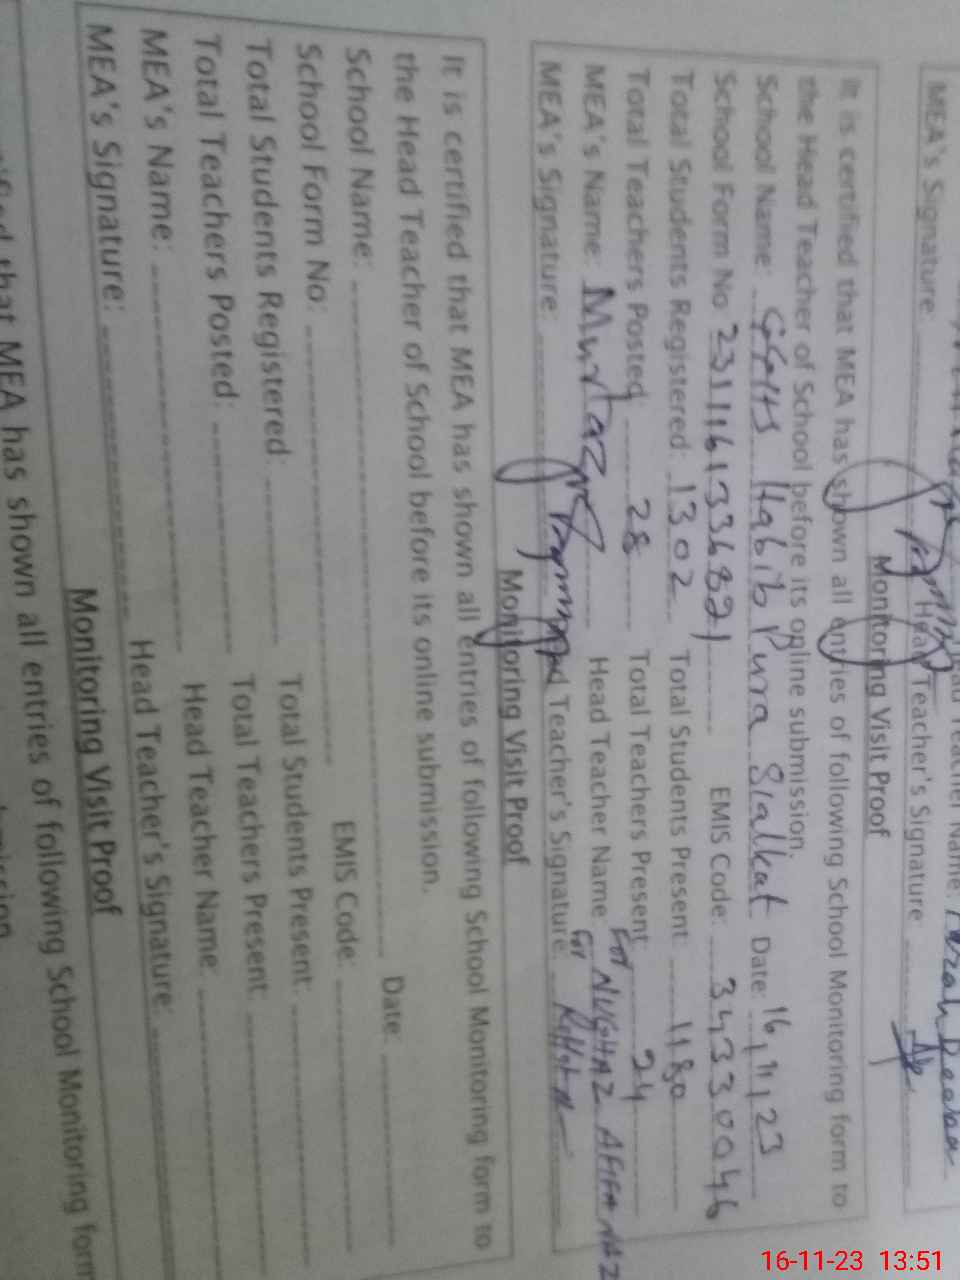 Head Teacher Name: Farah Deeba
MEA's Signature: Head Teacher's Signature
Monitoring Visit Proof
It is certified that MEA has shown all entries of following School Monitoring form to
the Head Teacher of School before its online submission.
School Name: GGHS Habib Purra Sialkot Date: 16,11,23
School Form No 231161336821 EMIS Code: 34330046
Total Students Registered: 1302 Total Students Present 1180
Total Teachers Posted 28 Total Teachers Present 24
MEA's Name: Murtaza Head Teacher Name For NUGHAZ AFIFA NAZ
MEA's Signature: Head Teacher's Signature: For
Monitoring Visit Proof
It is certified that MEA has shown all entries of following School Monitoring form to
the Head Teacher of School before its online submission.
School Name: Date:
School Form No: EMIS Code:
Total Students Registered: Total Students Present:
Total Teachers Posted: Total Teachers Present:
MEA's Name: Head Teacher Name:
MEA's Signature: Head Teacher's Signature:
Monitoring Visit Proof
that MEA has shown all entries of following School Monitoring form
16-11-23 13:51